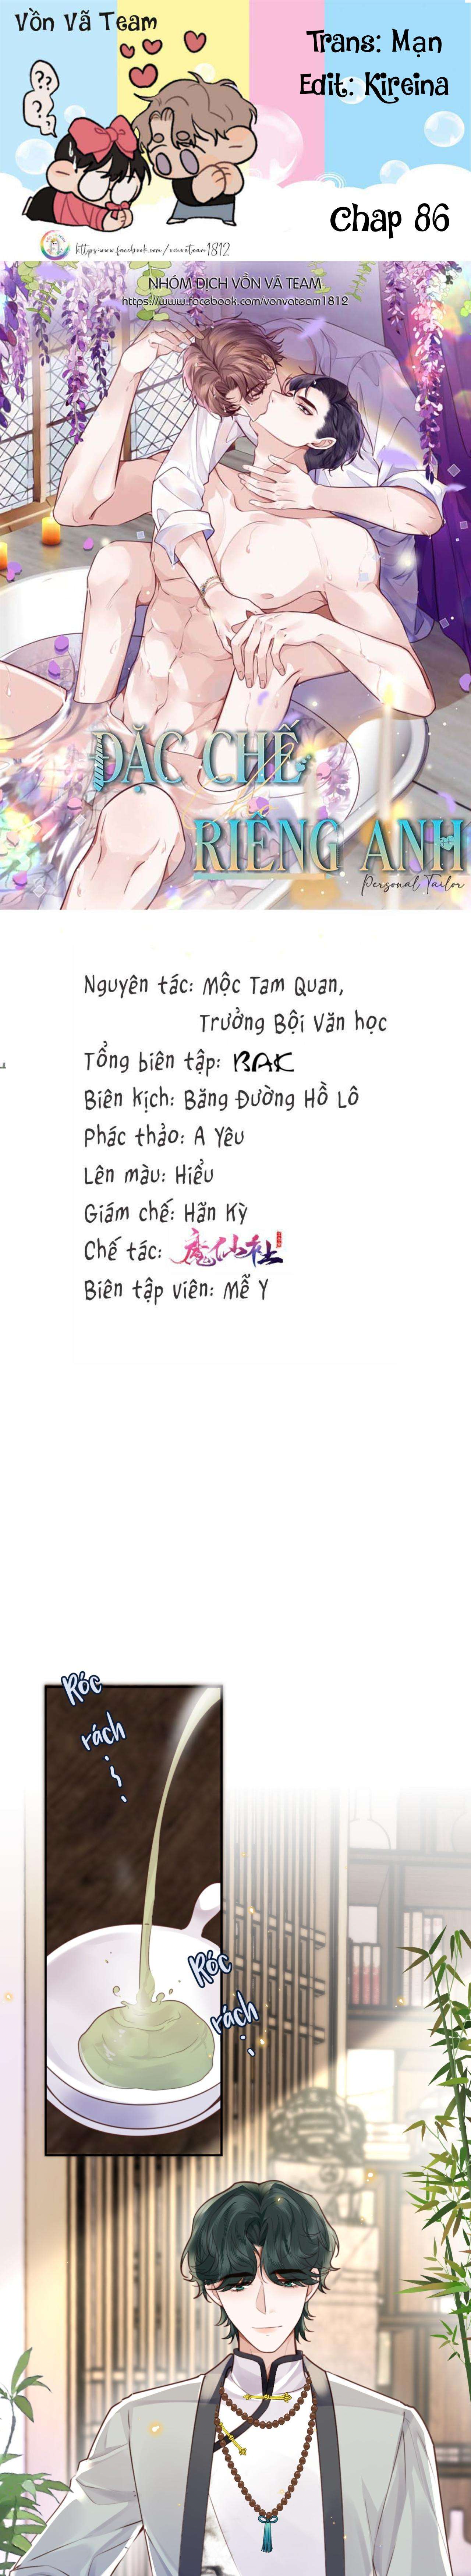 Vồn Vã Team
Trans: Mạn
Edit: Kireina
??
?
?
Chap 86
https://www.facebook.com/vonvateam1812
NHÓM DỊCH VỒN VÃ TEAM
https://www.facebook.com/vonvateam1812
ĐẶC CHẾ
RIÊNG ANH
Personal Tailor
Nguyên tác: Mộc Tam Quan,
Trưởng Bội Văn học
Tổng biên tập: BAK
Biên kịch: Băng Đường Hồ Lô
Phác thảo: A Yêu
Lên màu: Hiểu
Giám chế: Hãn Kỳ
Chế tác: 魔仙社
Biên tập viên: Mễ Y
Róc
rách
Róc
rách